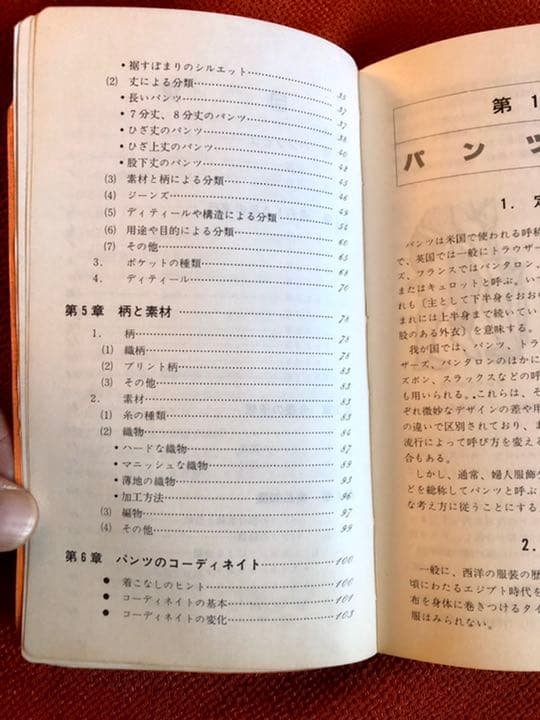 ・裾すぼまりのシルエット
(2) 丈による分類 35
・長いパンツ 37
・7分丈、8分丈のパンツ 37
・ひざ丈のパンツ 38
・ひざ上丈のパンツ 40
・股下丈のパンツ 42
(3) 素材と柄による分類 45
(4) ジーンズ 48
(5) ディティールや構造による分類 49
(6) 用途や目的による分類 54
(7) その他 60
3. ポケットの種類 65
4. ディティール 68
70
第5章 柄と素材 78
1. 柄 78
(1) 織柄 78
(2) プリント柄 83
(3) その他 83
2. 素材 83
(1) 糸の種類 83
(2) 織物 84
・ハードな織物 87
・マニッシュな織物 89
・薄地の織物 93
・加工方法 96
(3) 編物 97
(4) その他 99
第6章 パンツのコーディネイト 100
● 着こなしのヒント 100
● コーディネイトの基本 101
● コーディネイトの変化 103
第1
パンツ
1. 定
パンツは米国で使われる呼称
で、英国では一般にトラウザー
ズ、フランスではパンタロン、
またはキュロットと呼ぶ。いず
れも〔主として下半身をおお
まれには上半身まで続いてい
股のある外衣〕を意味する。
我が国では、パンツ、トラ
ザーズ、パンタロンのほかに
ズボン、スラックスなどの呼
も用いられる。これらは、そ
ぞれ微妙なデザインの差や用
の違いで区別されており、ま
流行によって呼び方を変える
合もある。
しかし、通常、婦人服飾
どを総称してパンツと呼ぶ
な考え方に従うことにする
2.
一般に、西洋の服装の歴
頃にわたるエジプト時代を
布を身体に巻きつけるタイ
服はみられない。